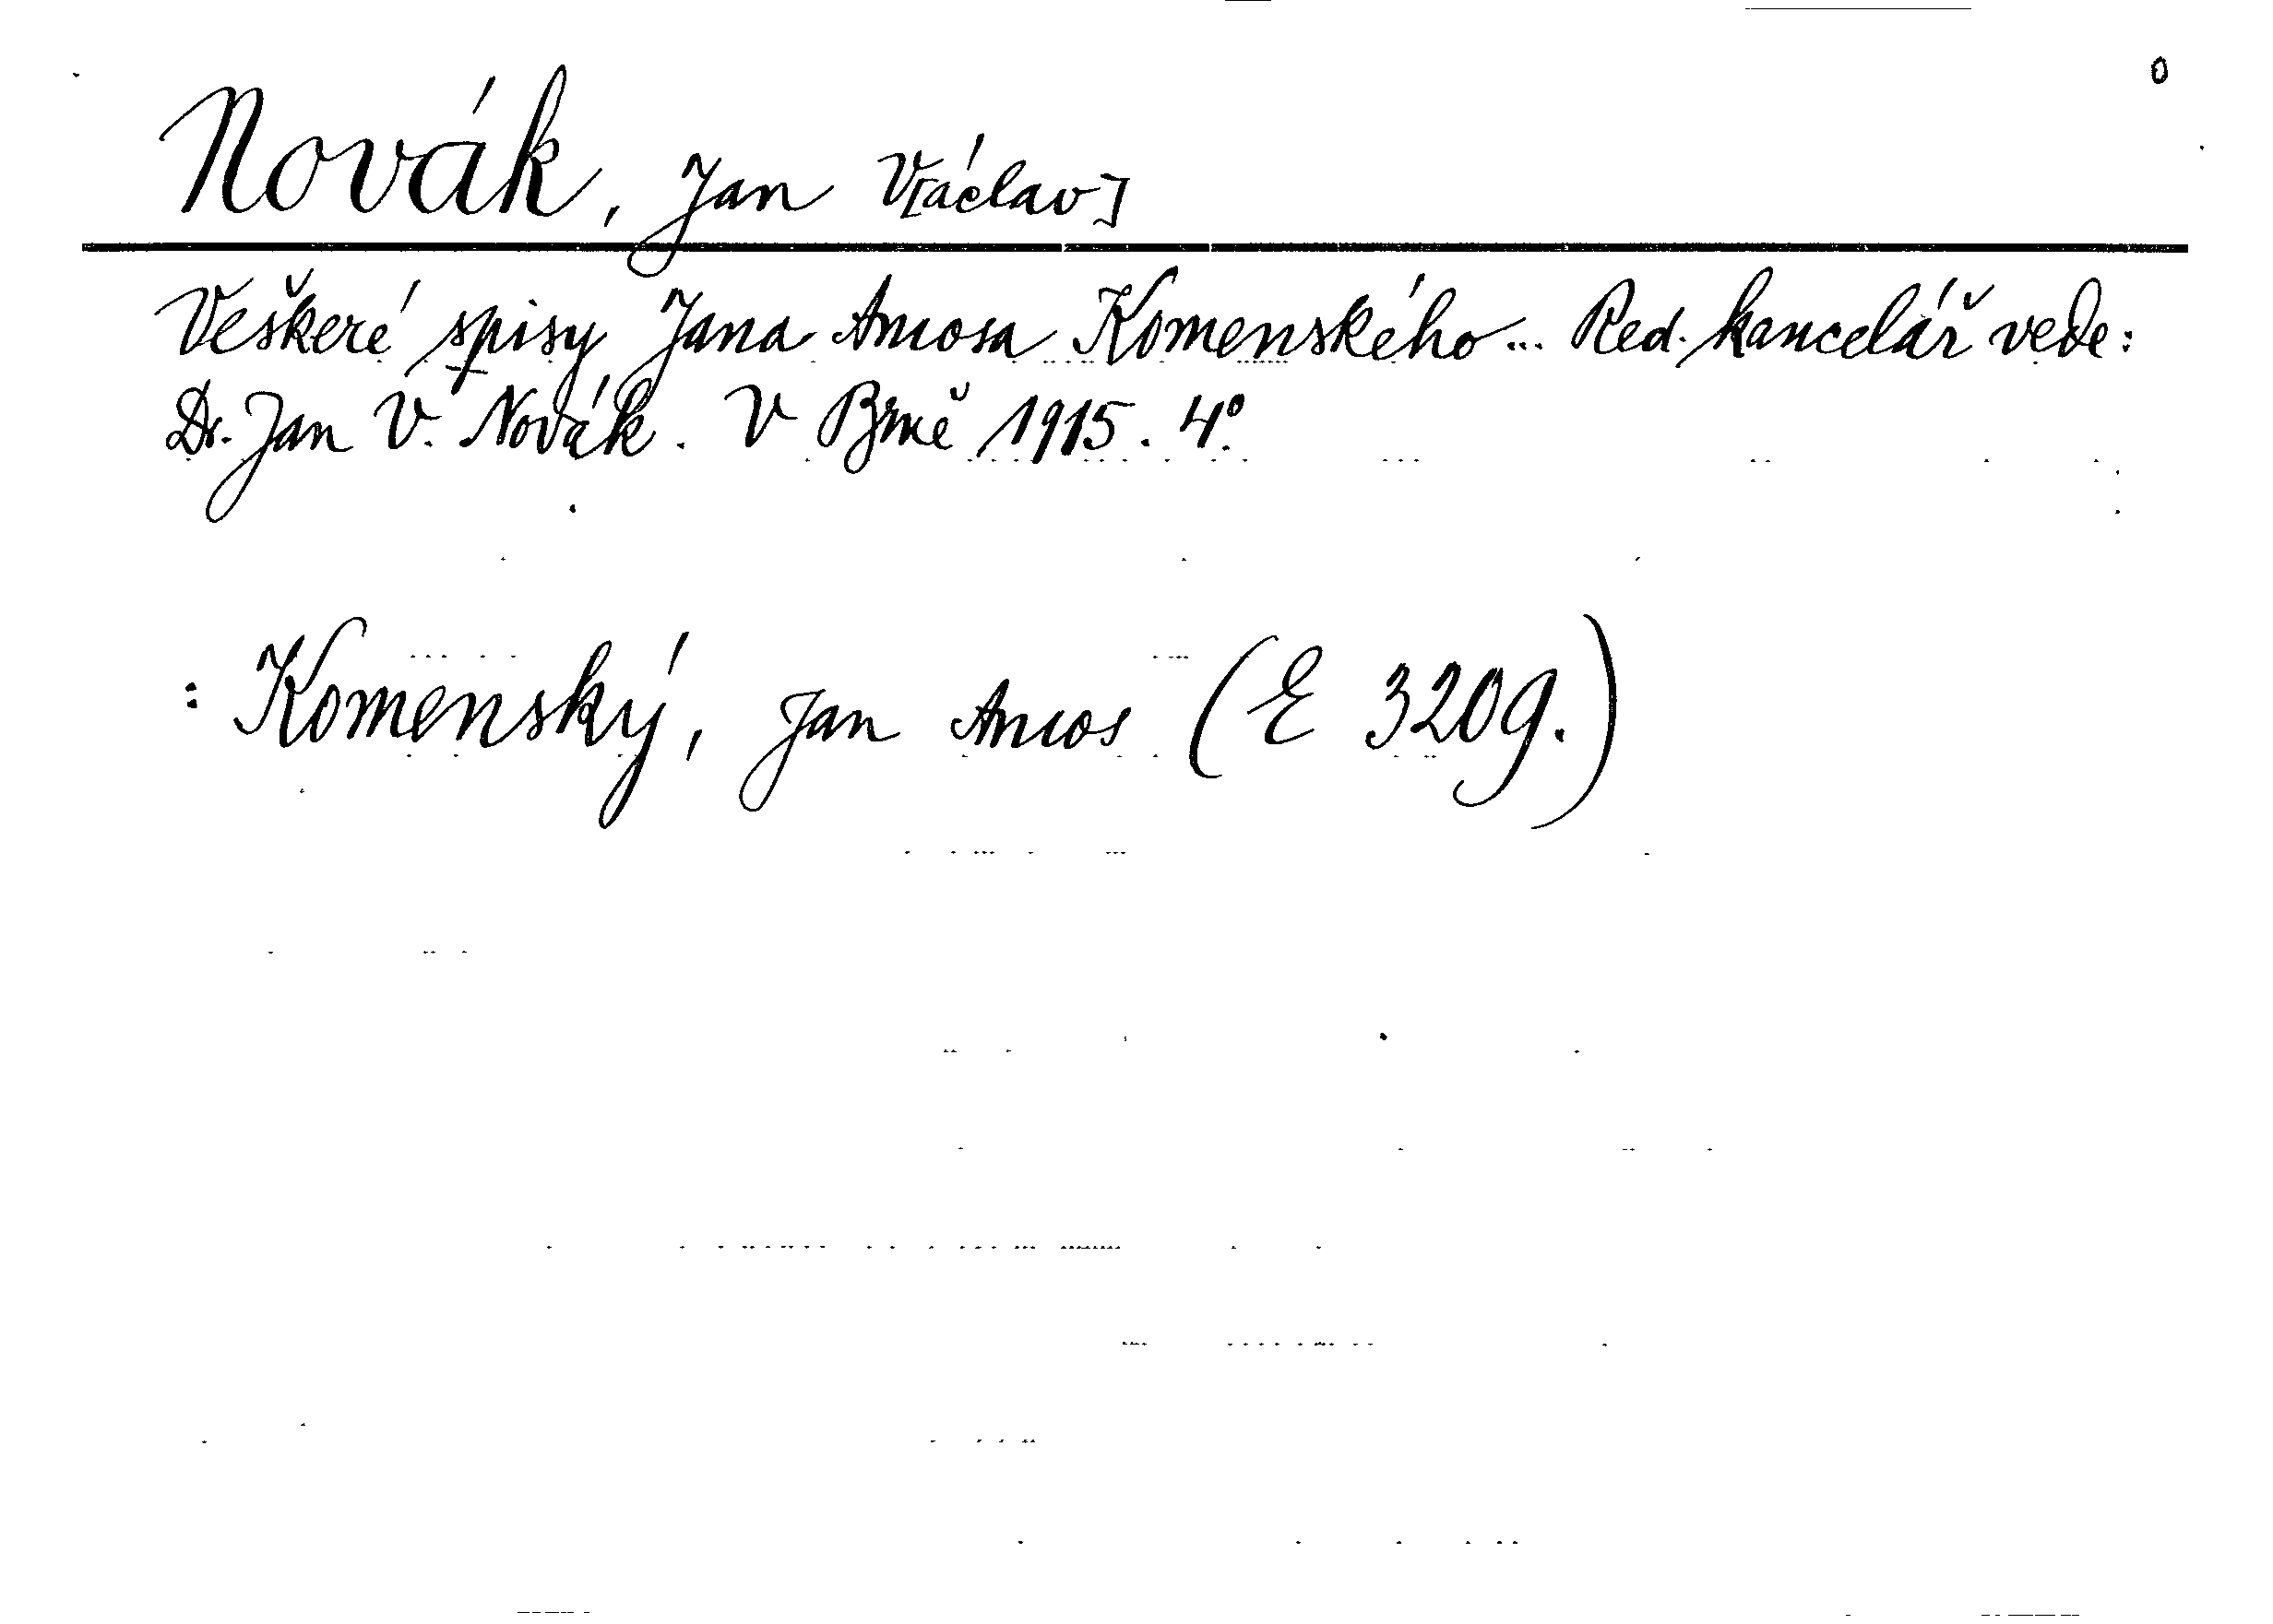 0
Novák, Jan V[áclav]
Veškeré spisy Jana Amosa Komenského... Red. kancelář vede:
Dr. Jan V. Novák. V Brně 1915. 4°.
: Komenský, Jan Amos (E 3209.)